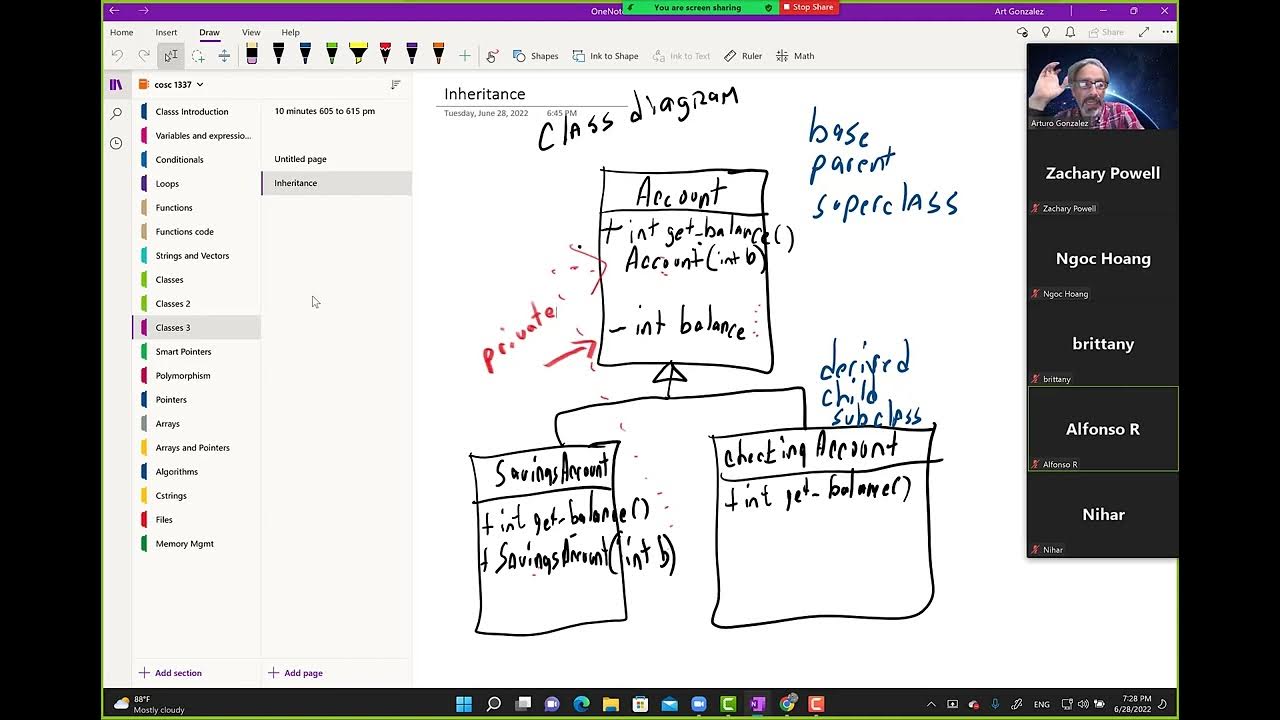 OneNote
You are screen sharing
Stop Share
Art Gonzalez
Home
Insert
Draw
View
Help
Share
Shapes
Ink to Shape
Ink to Text
Ruler
Math
cosc 1337
Classs Introduction
Variables and expressio...
Conditionals
Loops
Functions
Functions code
Strings and Vectors
Classes
Classes 2
Classes 3
Smart Pointers
Polymorphism
Pointers
Arrays
Arrays and Pointers
Algorithms
Cstrings
Files
Memory Mgmt
Add section
10 minutes 605 to 615 pm
Untitled page
Inheritance
Add page
Inheritance
Tuesday, June 28, 2022 6:45 PM
Class diagram
base
parent
superclass
Account
+ int get_balance()
Account(int b)
- int balance
private
derived
child
subclass
SavingsAccount
+ int get_balance()
+ SavingsAccount(int b)
checkingAccount
+ int get_balance()
Arturo Gonzalez
Zachary Powell
Zachary Powell
Ngoc Hoang
Ngoc Hoang
brittany
brittany
Alfonso R
Alfonso R
Nihar
Nihar
88°F
Mostly cloudy
ENG
7:28 PM
6/28/2022